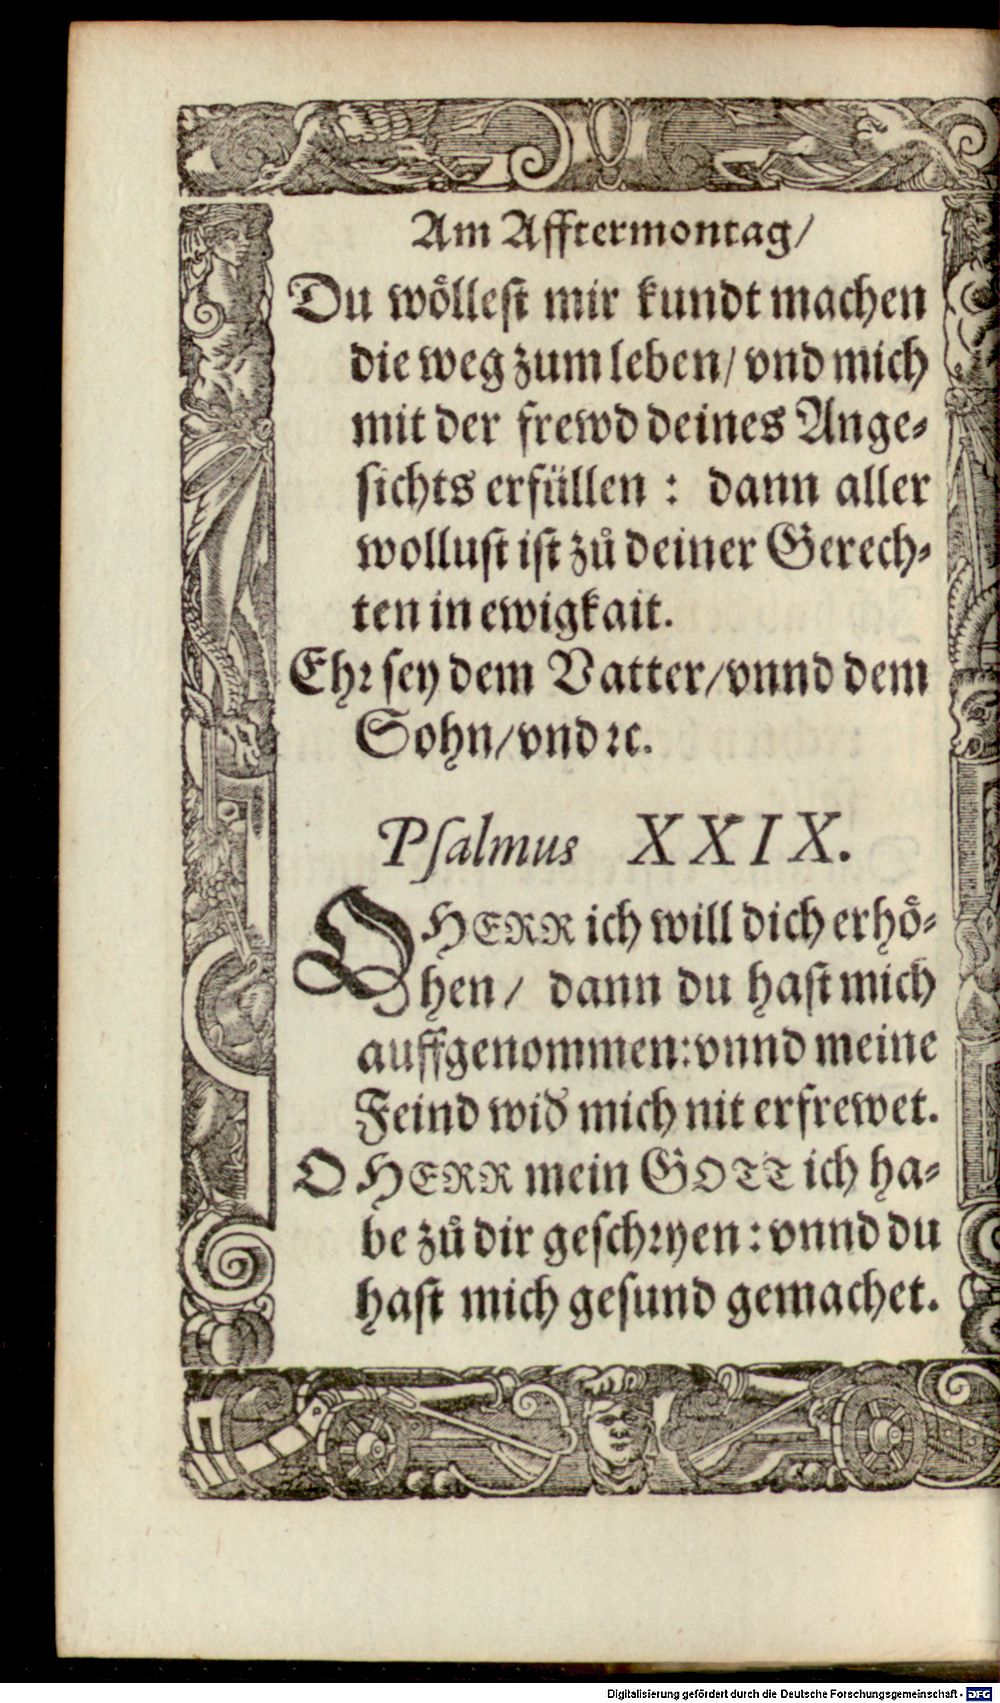 Am Afftermontag/
Du wöllest mir kundt machen
die weg zum leben/ vnd mich
mit der frewd deines Ange-
sichts erfüllen : dann aller
wollust ist zů deiner Gerech-
ten in ewigkait.
Ehr sey dem Vatter/vnnd dem
Sohn/vnd ꝛc.
Psalmus XXIX.
O HERR ich will dich erhö-
hen/ dann du hast mich
auffgenommen:vnnd meine
Feind wid mich nit erfrewet.
O HERR mein GOTT ich ha-
be zů dir geschryen : vnnd du
hast mich gesund gemachet.
Digitalisierung gefördert durch die Deutsche Forschungsgemeinschaft - DFG